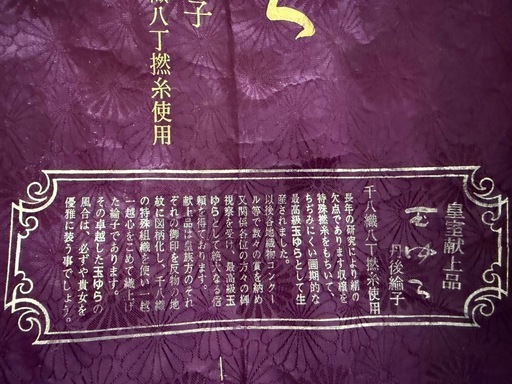 ら
子
織八丁撚糸使用
皇室献上品
玉ゆら
丹後綸子
千八織八丁撚糸使用
長年の研究により絹の
欠点であります収縮を
特殊撚糸をもちいて、
ちぢみにくい画期的な
最高級玉ゆらとして生
産されました。
以後各地織物コンクー
ル等で数々の賞を納め
又関係各位の方々の御
視察を受け、最高級玉
ゆらとして絶大なる信
頼を得ております。
献上品は皇族方のそれ
ぞれの御印を反物の地
紋に図柄化し、千八織
の特殊組織を使い一越
一越心を込めて織上げ
た綸子であります。
その卓越した玉ゆらの
風合は、必ずや貴女を
優雅に装う事でしょう。